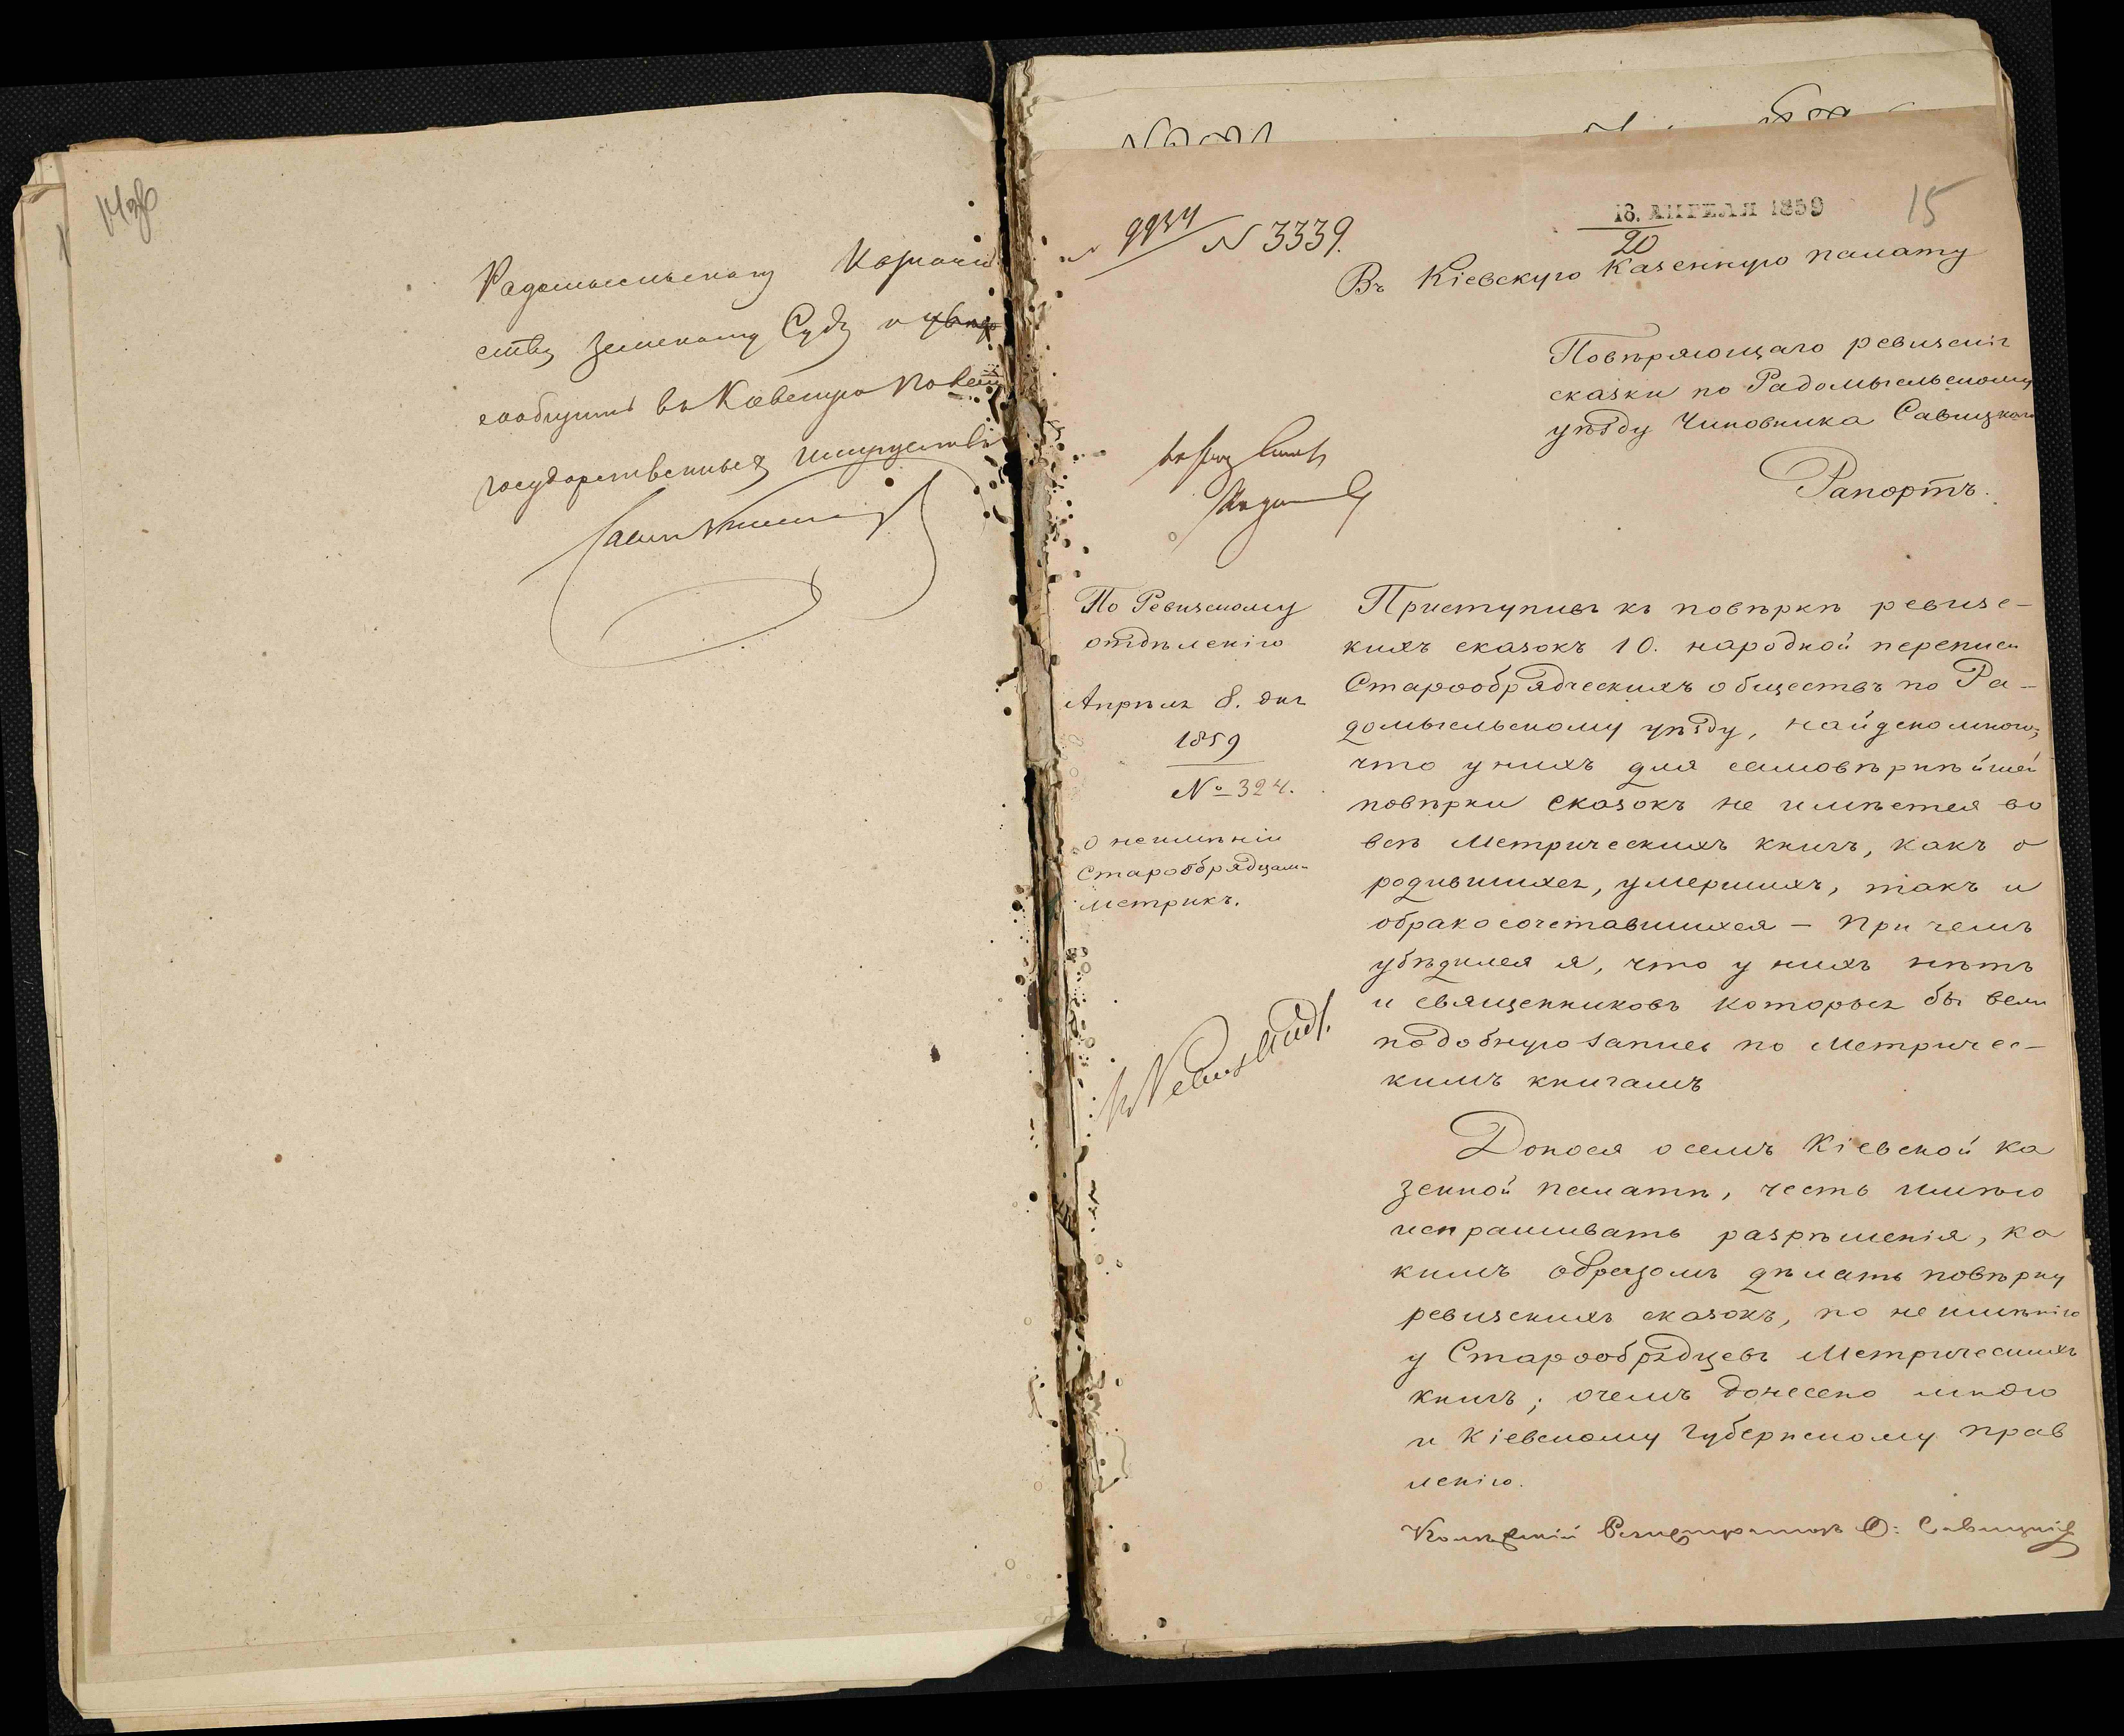 14зв
Радомысльскому Казначей
ству, Земскому Суду и
сообщить въ Кіевскую Палату
государственныхъ имуществъ
15
16. АПРЕЛЯ 1859
20
9934 N 3339.
Въ Кіевскую Казенную палату
Повѣряющаго ревизскія
сказки по Радомысльскому
уѣзду Чиновника Савицкаго
Рапортъ.
По Ревизскому
отдѣленію
Апрѣля 8. дня
1859
№ 324.
О неимѣніи
Старообрядцами
метрикъ.
Приступивъ къ повѣркѣ ревизс-
кихъ сказокъ 10. народной переписи
Старообрядческихъ обществъ по Ра-
домысльскому уѣзду, найдено мною,
что у нихъ для самовѣрнѣйшей
повѣрки сказокъ не имѣется во
все Метрическихъ книгъ, какъ о
родившихся, умершихъ, такъ и
обракосочетавшихся – При чемъ
убѣдился я, что у нихъ нѣтъ
и священниковъ которые бы вели
подобную запись по Метричес-
кимъ книгамъ
Донося о семъ Кіевской ка
зенной палатѣ, честь имѣю
испрашивать разрѣшенія, ка
кимъ образомъ дѣлать повѣрку
ревизскихъ сказокъ, по неимѣнію
у Старообрядцевъ Метрическихъ
книгъ; очемъ донесено мною
и Кіевскому Губернскому прав
ленію.
Колежскій Регистраторъ О: Савицкій